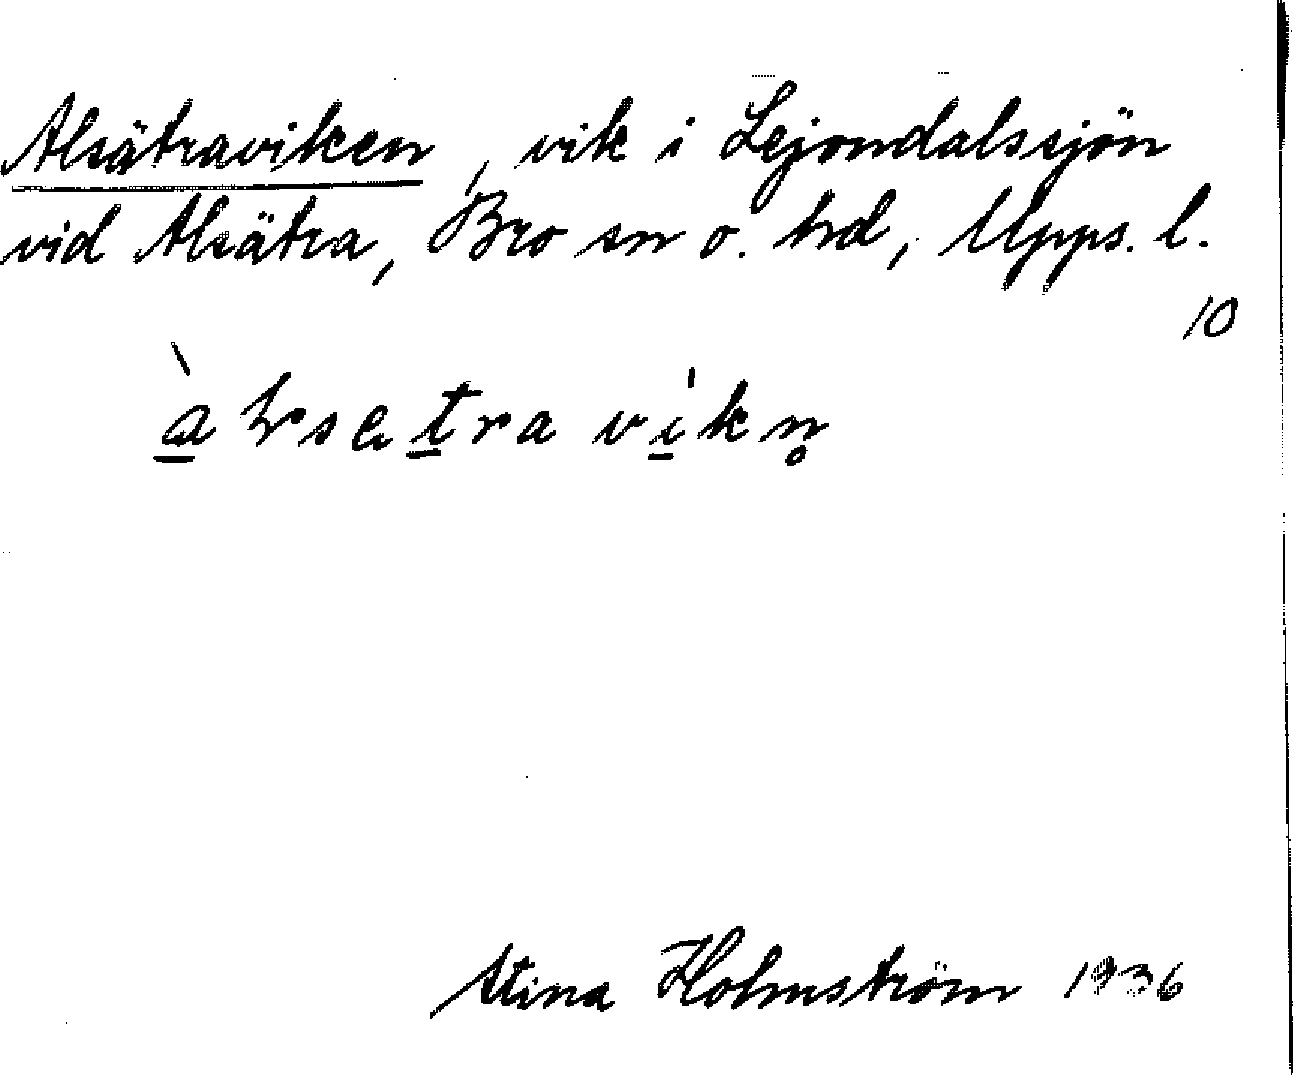 Alsätraviken, vik i Lejondalssjön
vid Alsätra, Bro sn o. hd, Upps. l.
10
Stina Holmström 1936